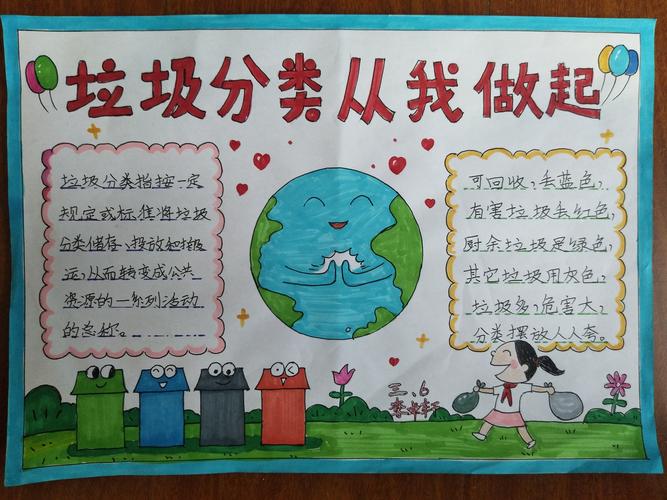 垃圾分类从我做起
垃圾分类指按一定
规定或标准将垃圾
分类储存、投放和搬
运,从而转变成公共
资源的一系列活动
的总称。
可回收,丢蓝色,
有害垃圾丢红色,
厨余垃圾是绿色,
其它垃圾用灰色,
垃圾多,危害大,
分类摆放人人夸。
三、6